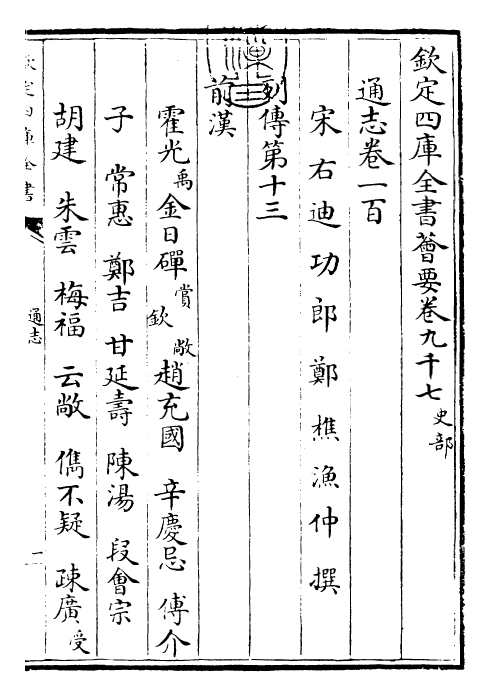 欽定四庫全書薈要卷九千七史部
通志卷一百
宋右迪功郎鄭樵漁仲撰
列傳第十三
前漢
霍光禹金日磾賞欽敞趙充國 辛慶忌 傅介
子 常惠 鄭吉 甘延壽 陳湯 段會宗
胡建 朱雲 梅福 云敞 雋不疑 疎廣受
欽定四庫全書
通志
一